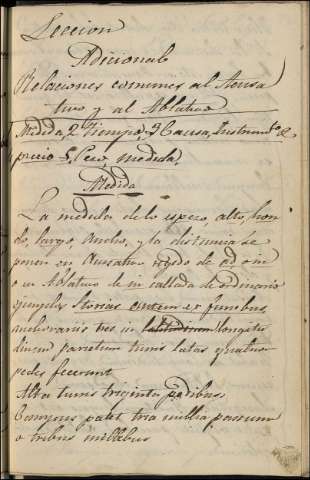 Leccion
Adicional
Relaciones comunes al Acusa
tivo y al Ablativo
Medida, 2 Tiempo, 3 Causa, Instrumto &
precio 5 Peso, medida,
Medida
La medida de lo espeso, alto, hon
do, largo, Ancho, y la distancia se
ponen en Acusativo regido de ad o in
o en Ablativo de in callada de ordinario
ejemplos autem ex funibus,
tres in longitu
dinem parietum turris latas quatuor
pedes fecerunt
Alta turris triginta pedibus
Campus patet tria millia passuum
o tribus millibus